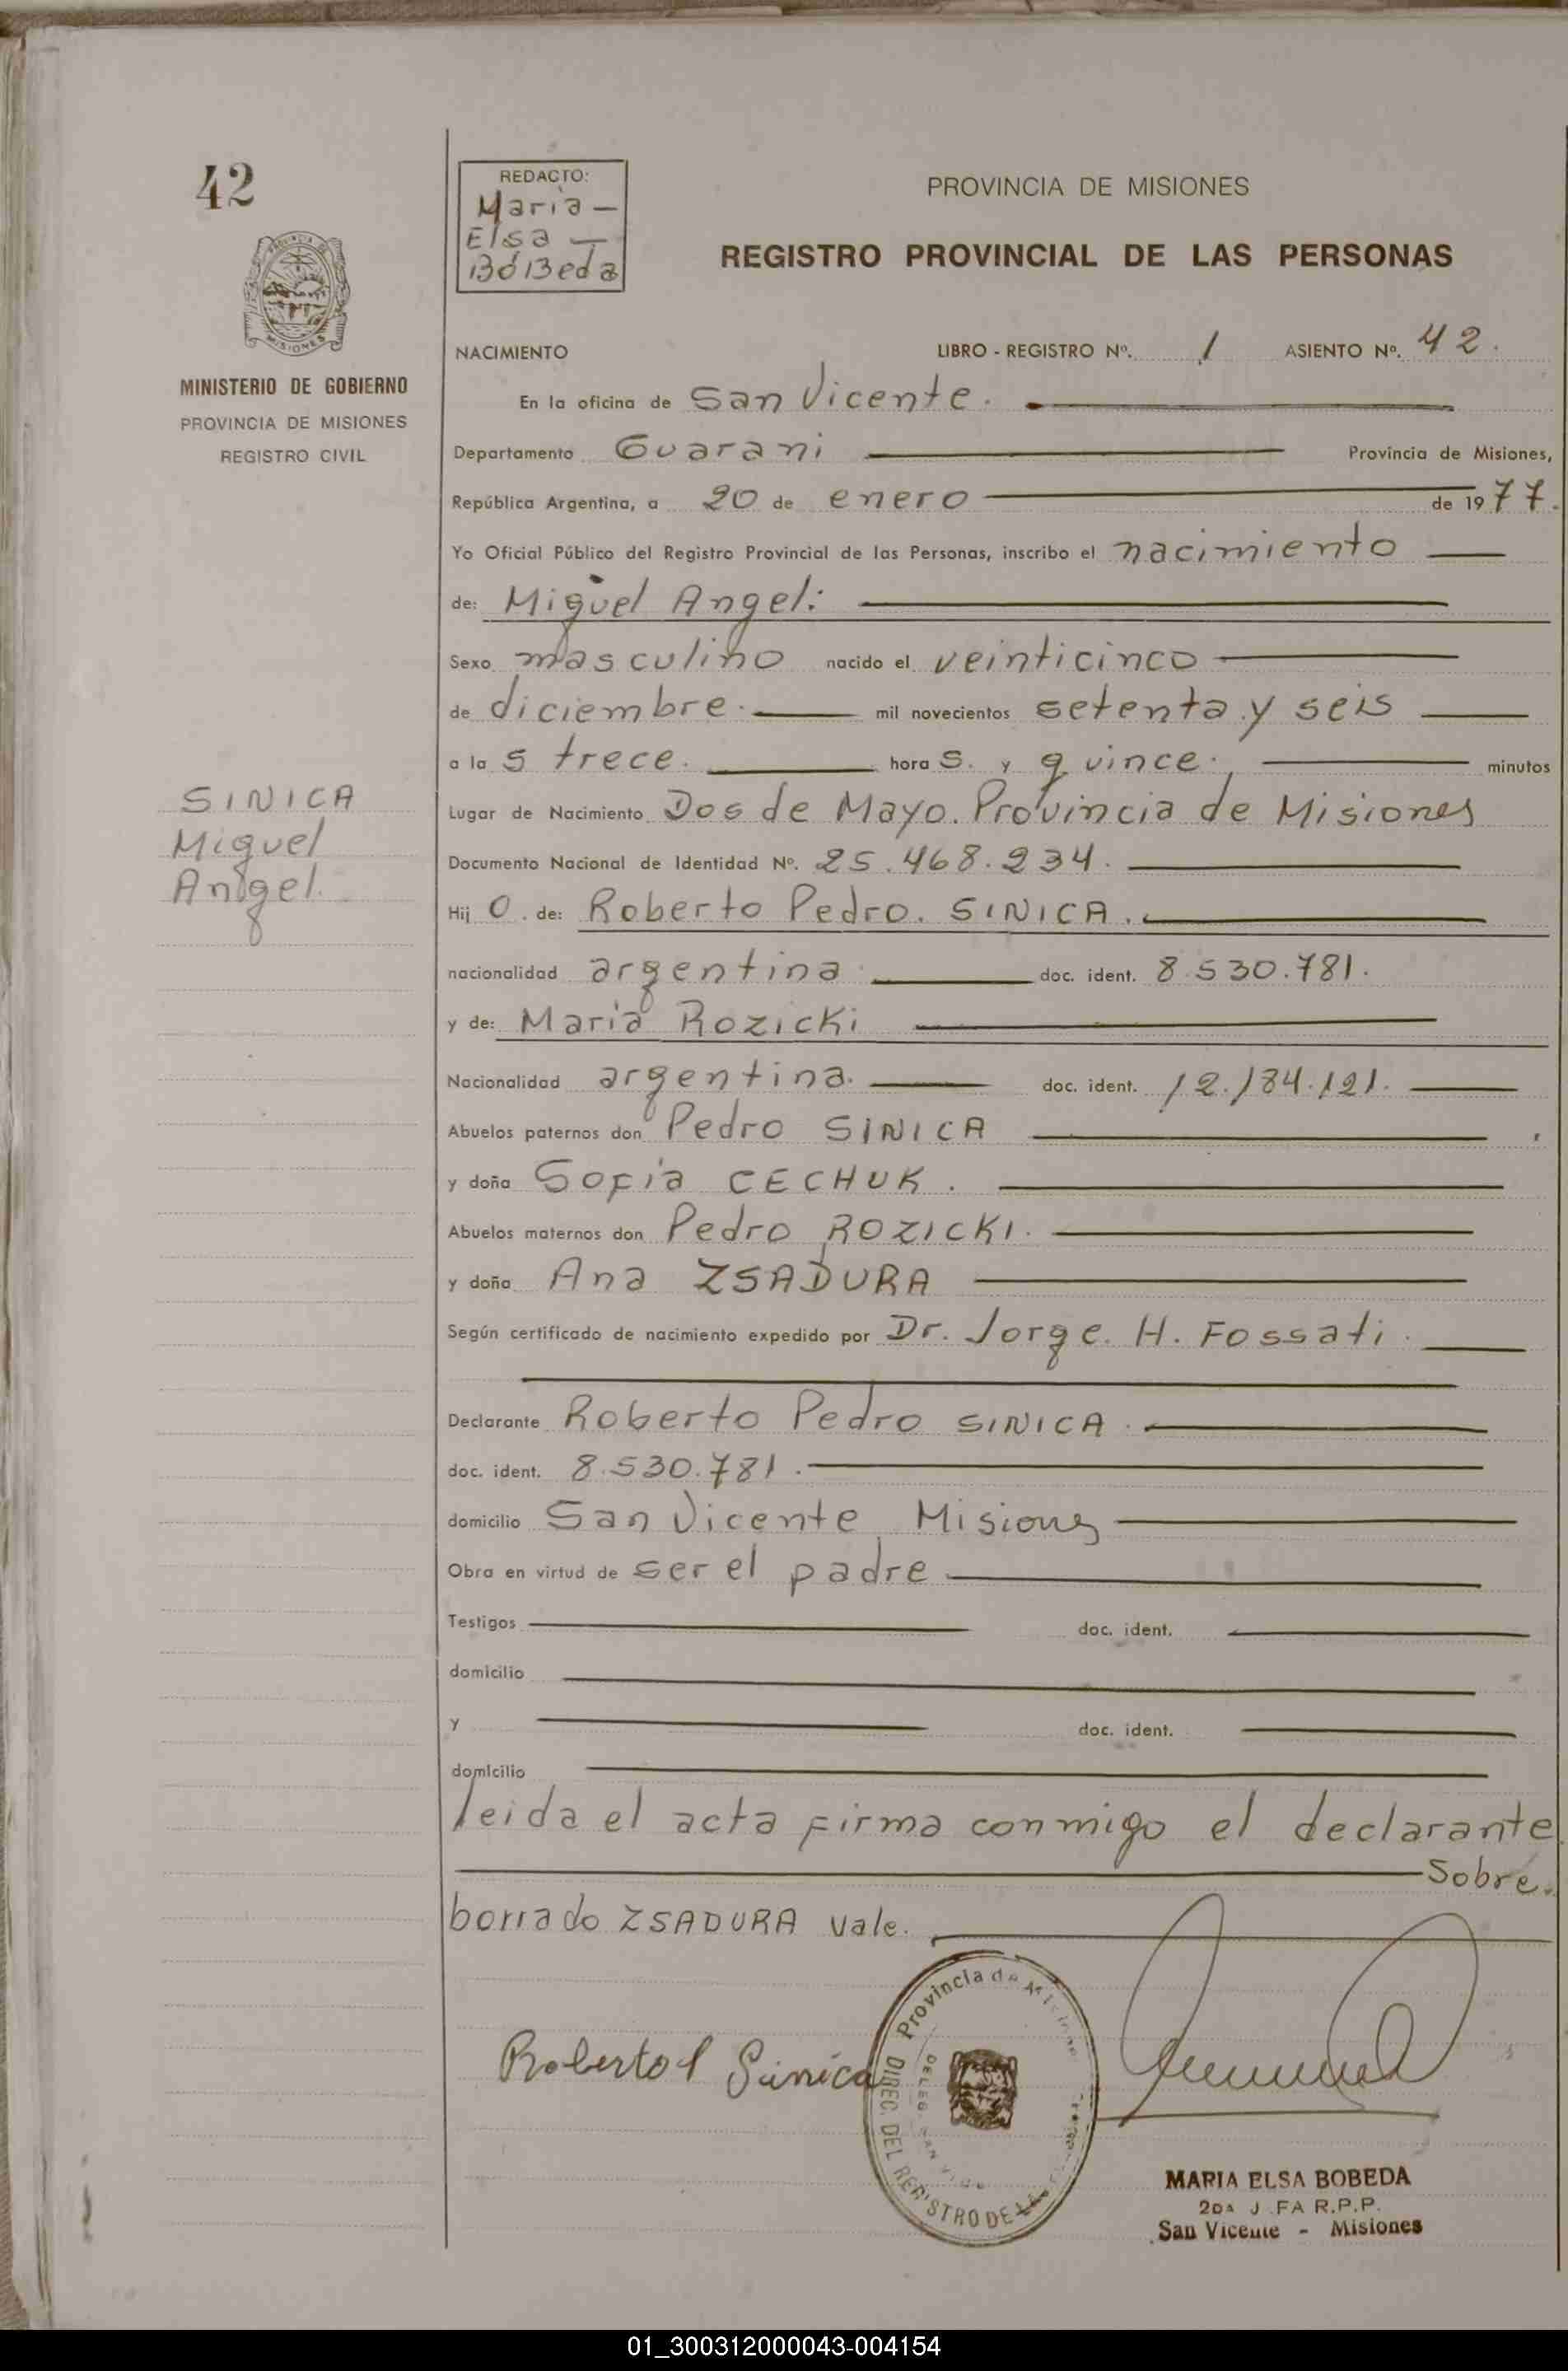 42
REDACTO:
Maria
Elsa
BoBeda
PROVINCIA DE MISIONES
REGISTRO PROVINCIAL DE LAS PERSONAS
MISIONES
MINISTERIO DE GOBIERNO
PROVINCIA DE MISIONES
REGISTRO CIVIL
NACIMIENTO LIBRO - REGISTRO Nº. 1 ASIENTO Nº. 42.
En la oficina de San Vicente.
Departamento Guarani Provincia de Misiones,
República Argentina, a 20 de enero de 1977.
Yo Oficial Público del Registro Provincial de las Personas, inscribo el nacimiento
de: Miguel Angel:
Sexo masculino nacido el veinticinco
de diciembre. mil novecientos setenta y seis
a las trece. horas. y quince. minutos
SINICA
Miguel
Angel.
Lugar de Nacimiento Dos de Mayo. Provincia de Misiones
Documento Nacional de Identidad Nº. 25.468.234.
Hijo. de: Roberto Pedro. SINICA.
nacionalidad argentina doc. ident. 8.530.781.
y de: Maria Rozicki
Nacionalidad argentina. doc. ident. 12.184.121.
Abuelos paternos don Pedro SINICA
y doña Sofia CECHUK.
Abuelos maternos don Pedro ROZICKI.
y doña Ana ZSADURA
Según certificado de nacimiento expedido por Dr. Jorge. H. Fossati.
Declarante Roberto Pedro SINICA.
doc. ident. 8.530.781.
domicilio San Vicente Misiones
Obra en virtud de ser el padre
Testigos doc. ident.
domicilio
y doc. ident.
domicilio
leida el acta firma conmigo el declarante
Sobre.
borrado ZSADURA vale.
Provincia de Misiones
DIREC. DEL REGISTRO DE LAS
DELEG. SAN VICE
Roberto P Sinica
MARIA ELSA BOBEDA
2DA J FA R.P.P.
San Vicente - Misiones
01_300312000043-004154